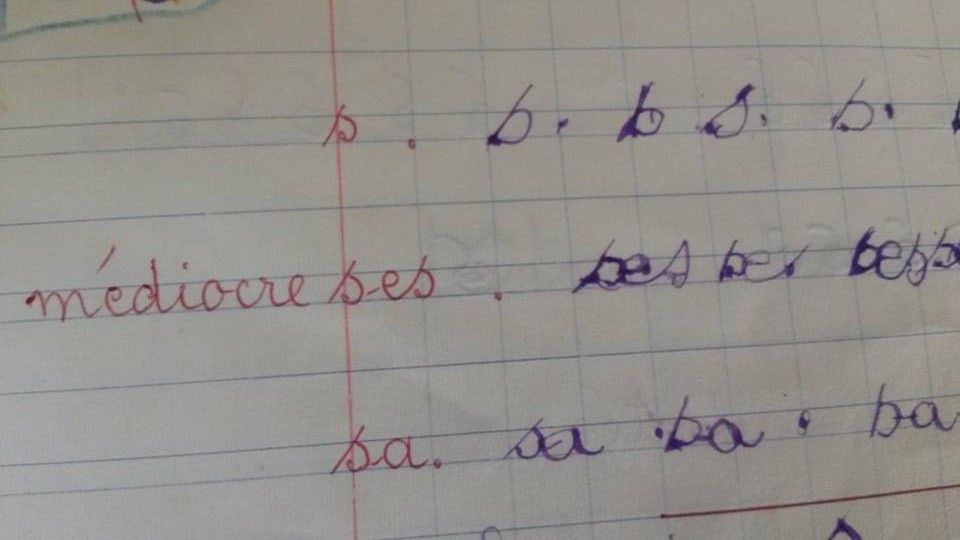 s . s. s s. s.
médiocre ses . ses ses ses
sa. sa .sa . sa